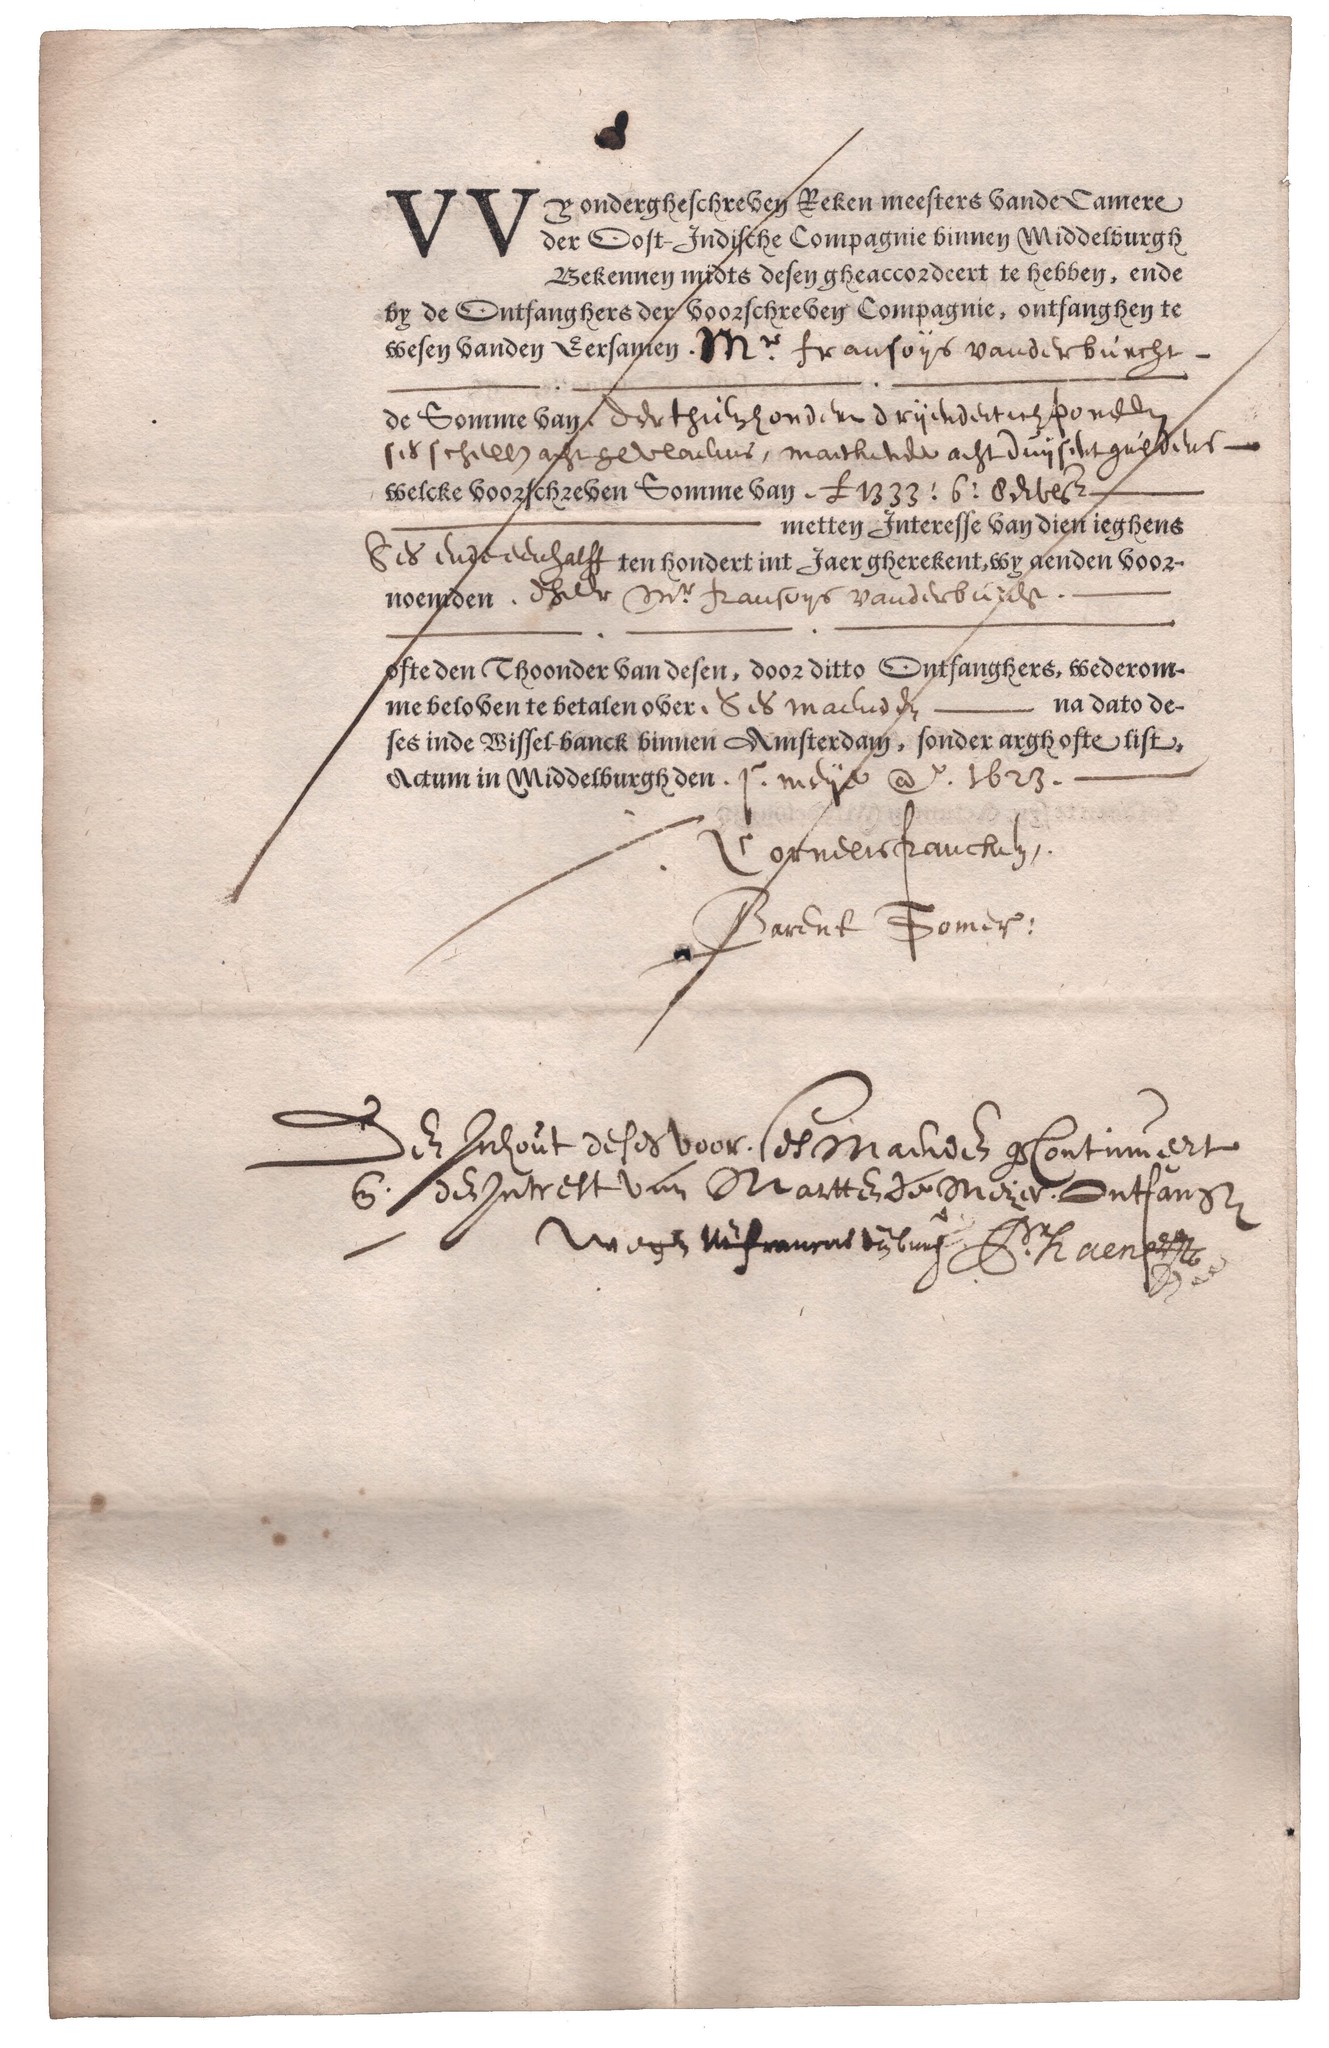 VVy ondergheschreven Reken-meesters vande Camere
der Oost-Indische Compagnie binnen Middelburgh
Bekennen midts desen gheaccordeert te hebben, ende
by de Ontfanghers der voorschreven Compagnie, ontfanghen te
wesen vanden Eersamen. Mr. fransoijs vanderburcht
de Somme van. derthien hondert drijendertich ponden
ses schell acht grooten, maeckende acht duijsent guldens
welcke voorschreven Somme van. £ 1333 : 6 : 8
metten Interesse van dien ieghens
Ses ende een halff ten hondert int Jaer gherekent, wy aenden voor-
noemden. dheer Mr. fransoys vanderburcht.
ofte den Thoonder van desen, door ditto Ontfanghers, wederom-
me beloven te betalen over. Ses maenden na dato de-
ses inde Wissel-banck binnen Amsterdam, sonder argh ofte list.
Actum in Middelburgh den. meye ao. 1623.
Cornelis francken.
Barent Somer:
Den Inhout deses voor. ses Maenden gecontinueert
den Intrest van Martten de Meijer. Ontfangen